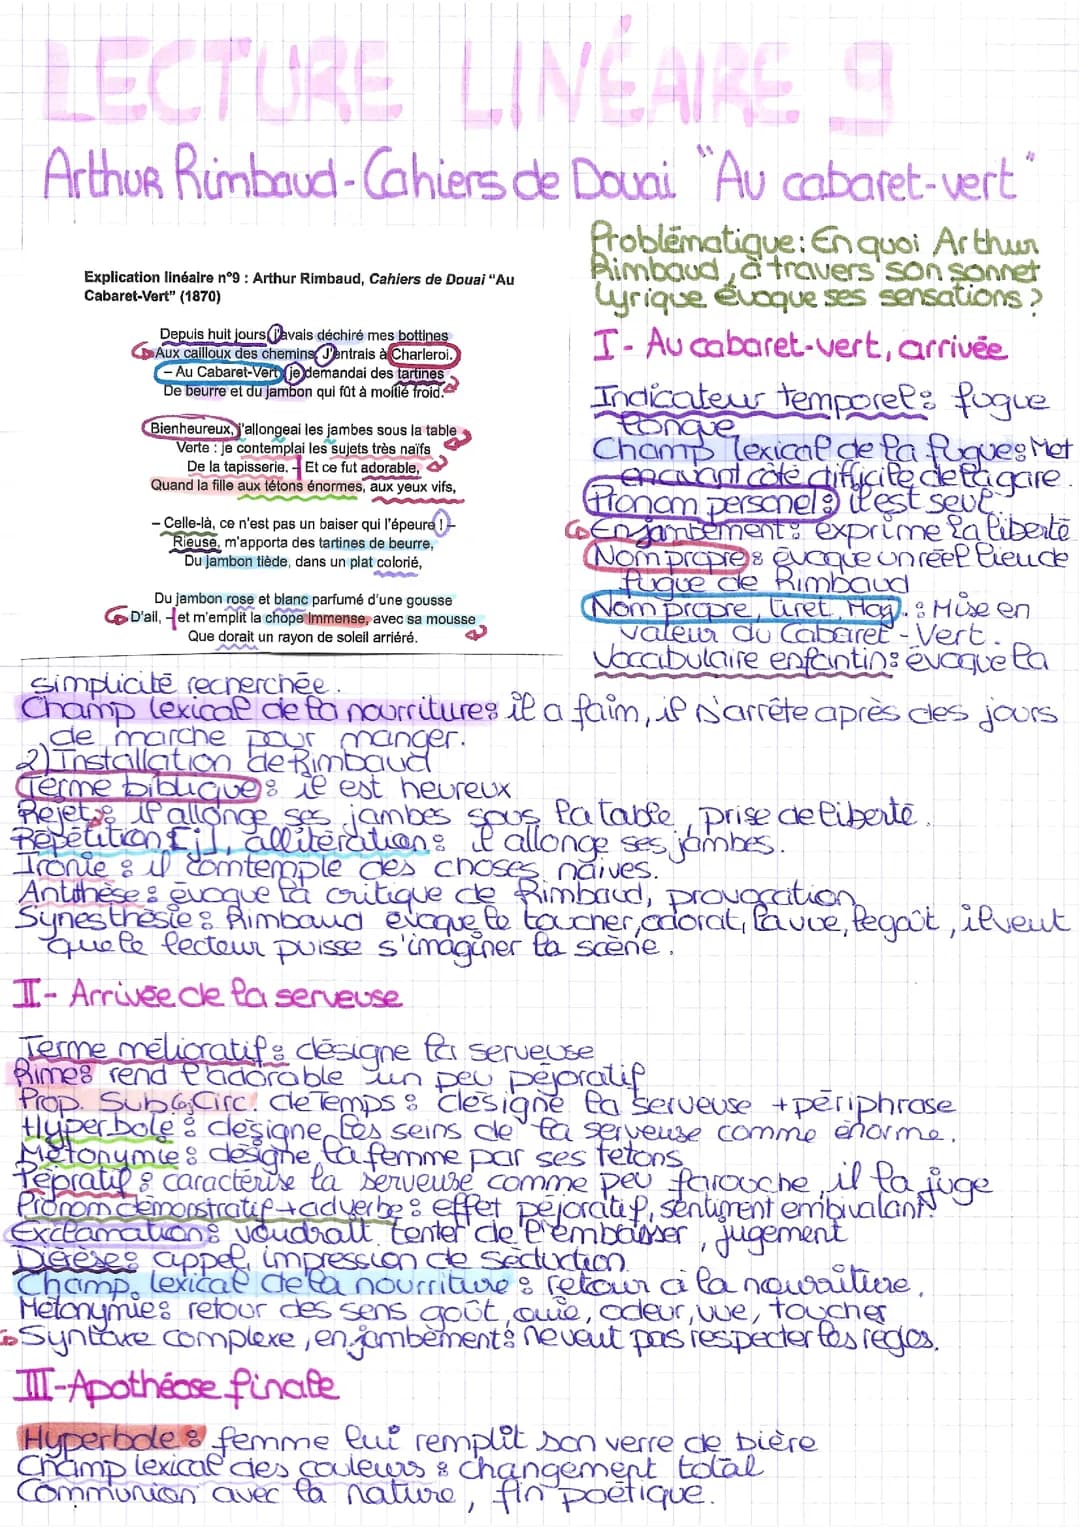 LECTURE LINÉAIRE 9
Arthur Rimbaud - Cahiers de Douai "Au cabaret-vert"
Explication linéaire n°9 : Arthur Rimbaud, Cahiers de Douai "Au
Cabaret-Vert" (1870)
Depuis huit jours, j'avais déchiré mes bottines
Aux cailloux des chemins. J'entrais à Charleroi.
– Au Cabaret-Vert : je demandai des tartines
De beurre et du jambon qui fût à moitié froid.
Bienheureux, j'allongeai les jambes sous la table
Verte : je contemplai les sujets très naïfs
De la tapisserie. – Et ce fut adorable,
Quand la fille aux tétons énormes, aux yeux vifs,
– Celle-là, ce n'est pas un baiser qui l'épeure ! –
Rieuse, m'apporta des tartines de beurre,
Du jambon tiède, dans un plat colorié,
Du jambon rose et blanc parfumé d'une gousse
D'ail, – et m'emplit la chope immense, avec sa mousse
Que dorait un rayon de soleil arriéré.
Problématique : En quoi Arthur
Rimbaud, à travers son sonnet
lyrique évoque ses sensations ?
I - Au cabaret-vert, arrivée
Indicateur temporel : fugue
longue
Champ lexical de la fugue : Met
en avant côté difficile de la gare.
Pronom personel : il est seul.
Enjambement : exprime la liberté
Nom propre : évoque un réel lieu de
fugue de Rimbaud
Nom propre, tiret, Maj. : Mise en
valeur du Cabaret-Vert.
Vocabulaire enfantin : évoque la
simplicité recherchée.
Champ lexical de la nourriture : il a faim, il s'arrête après des jours
de marche pour manger.
2) Installation de Rimbaud
Terme biblique : il est heureux
Rejet : il allonge ses jambes sous la table, prise de liberté.
Répétition [j], allitération : il allonge ses jambes.
Ironie : il comtemple des choses naïves.
Antithèse : évoque la critique de Rimbaud, provocation
Synesthésie : Rimbaud évoque le toucher, odorat, la vue, le goût, il veut
que le lecteur puisse s'imaginer la scène.
II - Arrivée de la serveuse
Terme mélioratif : désigne la serveuse
Rimes rend l'adorable un peu péjoratif
Prop. Sub Circ. de Temps : désigne la serveuse + périphrase
Hyperbole : désigne les seins de la serveuse comme énorme.
Métonymie : désigne la femme par ses tétons
Pépratif : caractérise la serveuse comme peu farouche, il la juge
Pronom démonstratif + adverbe : effet péjoratif, sentiment embivalant.
Exclamation : voudrait tenter de l'embrasser, jugement
Diérèse : appel, impression de séduction.
Champ lexical de la nourriture : retour à la nourriture.
Métonymie : retour des sens goût, ouïe, odeur, vue, toucher
Syntaxe complexe, enjambement : ne veut pas respecter les règles.
III - Apothéose finale
Hyperbole : femme lui remplit son verre de bière
Champ lexical des couleurs : changement total
Communion avec la nature, fin poétique.